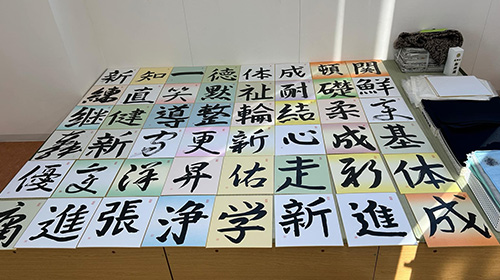 新 知 一 德 体 成 頓 関
練 直 笑 默 祉 耐 礎 鮮
継 健 導 整 輪 結 柔 文
舞 新 有 更 新 心 成 基
優 文 洋 昇 佑 走 彩 体
進 張 浄 学 新 進 成